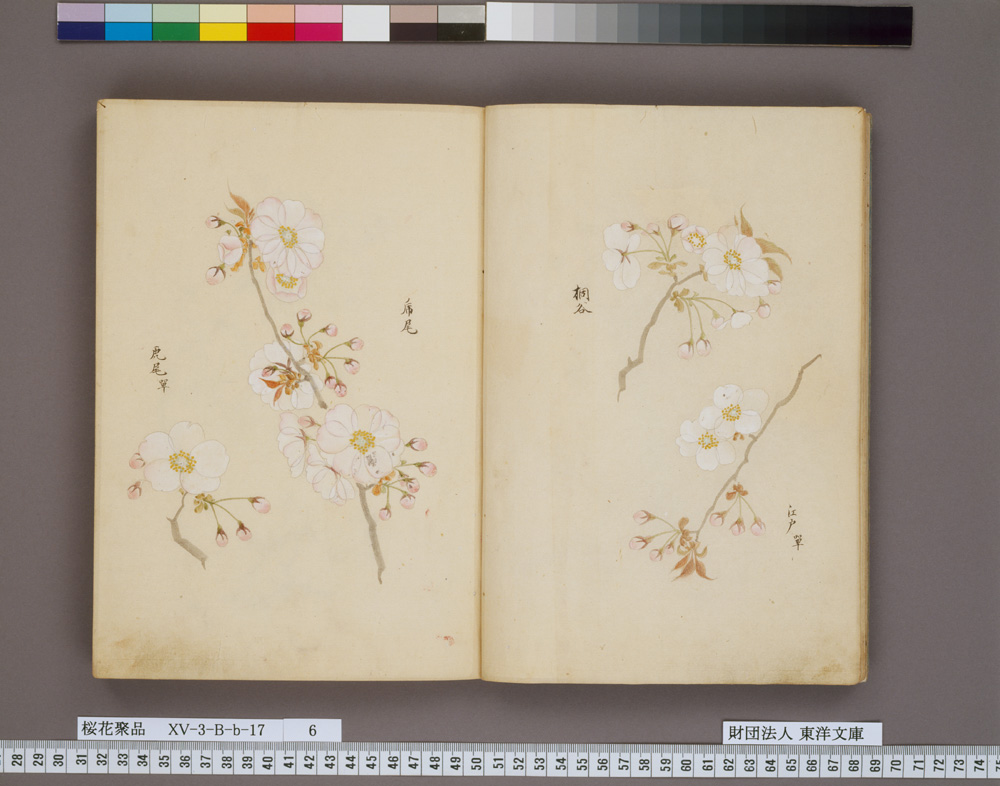 桐谷
江戸單
虎尾
虎尾單
桜花聚品 XV-3-B-b-17 6
財団法人 東洋文庫
28 29 30 31 32 33 34 35 36 37 38 39 40 41 42 43 44 45 46 47 48 49 50 51 52 53 54 55 56 57 58 59 60 61 62 63 64 65 66 67 68 69 70 71 72 73 74